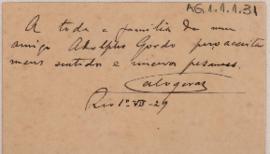 AG.1.1.1.31
A toda a familia do meu
amigo Adolpho Gordo peço acceitar
meus sentidos e sinceros pesames.
Calogeras
Rio 1º-VII-29